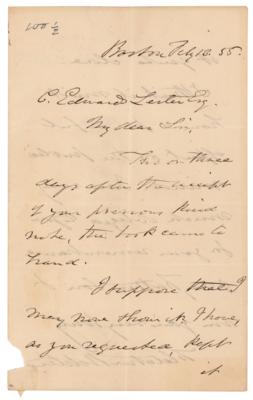 100 ½
Boston Feby 18. 55.
C. Edward Lester Esq.
My dear Sir,
Two or three
days after the receipt
of your previous kind
note, the book came to
hand.
I suppose that I
may now thank I have,
as you requested, kept
it